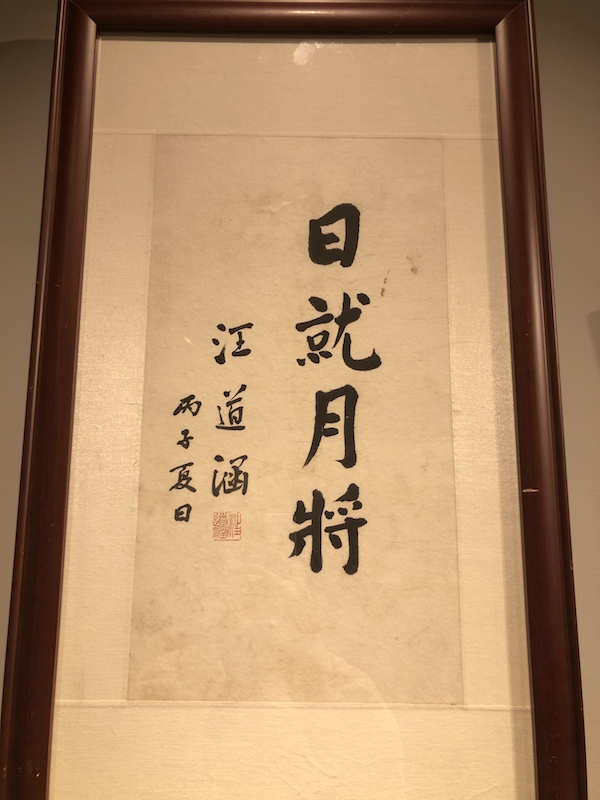 日就月將
汪道涵
丙子夏日